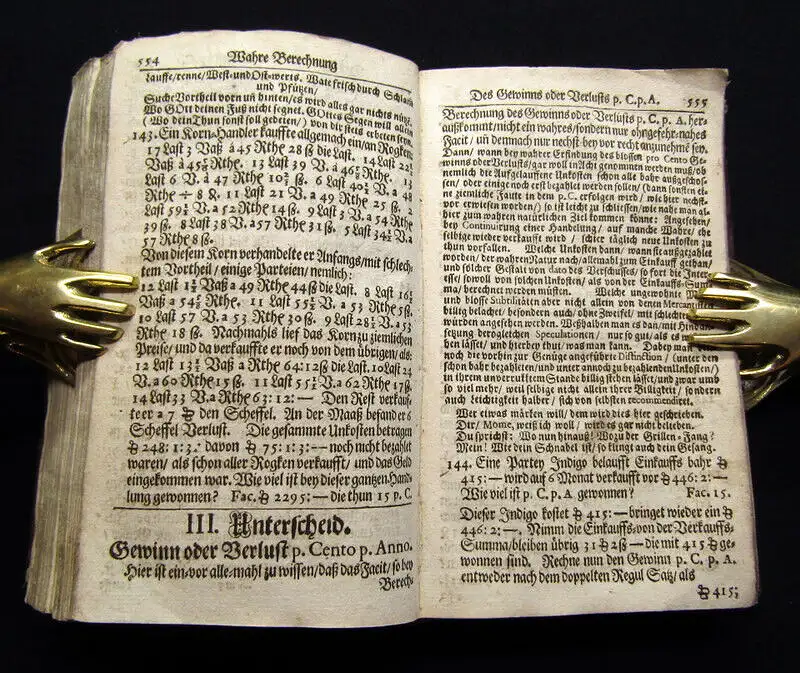 554 Wahre Berechnung
lauffe/renne/West-und Ost-werts. Wate frisch durch Schlam
und Pfützen/
Suche Vortheil vorn uñ hinten/es wird alles gar nichts nütz.
Wo GOtt deinen Fuß nicht segnet. GOttes Segen will allein
(Wo dein Thun soll gedeien/) von dir stets erbeten seyn.
143. Ein Korn-Händler kauffte allgemach ein/an Rogken
17 Last 3 Vaß à 45 Rthe 28 ß die Last. 14 Last 22½
Vaß à 45⅝ Rthe. 13 Last 39 V. à 46⅞ Rthe. 13
Last 6 V. à 47 Rthe 10⅔ ß. 6 Last 40½ V. à 48
Rthe ÷ 8 ₰. 11 Last 21 V. à 49 Rthe 25 ß. 2
Last 59½ V. à 52 Rthe 14 ß. 9 Last 3 V. à 54 Rthe
39 ß. 8 Last 38 V. à 57 Rthe 31 ß. 5 Last 34½ V. à
57 Rthe 8 ß.
Von diesem Korn verhandelte er Anfangs/mit schlech-
tem Vortheil/einige Parteien/nemlich:
12 Last 1½ Vaß à 49 Rthe 44 ß die Last. 8 Last 16½
Vaß à 54⅔ Rthe. 11 Last 55½ V. à 53 Rthe 5 ß.
10 Last 57 V. à 53 Rthe 30 ß. 9 Last 28½ V. à 53
Rthe 18 ß. Nachmahls lief das Korn zu ziemlichen
Preise/und da verkauffte er noch von dem übrigen/als:
12 Last 13½ Vaß à Rthe 64:12 ß die Last. 10 Last 24
V. à 60 Rthe 15 ß. 11 Last 55½ V. à 62 Rthe 17 ß.
14 Last 33 V. à Rthe 63:12:— Den Rest verkauf-
te er à 7 ₰ den Scheffel. An der Maaß befand er 6
Scheffel Verlust. Die gesammte Unkosten betragen
₰ 248:1:3. davon ₰ 75:1:3:— noch nicht bezahlt
waren/als schon aller Rogken verkaufft/und das Geld
eingekommen war. Wie viel ist bey dieser gantzen Hand-
lung gewonnen? Fac. ₰ 2295:— die thun 15 p. C.
III. Unterscheid.
Gewinn oder Verlust p. Cento p. Anno.
Hier ist ein-vor alle-mahl zu wissen/daß das Facit/so bey
Berech-
Des Gewinns oder Verlusts p. C. p. A. 555
Berechnung des Gewinns oder Verlusts p. C. p. A. her-
außkommt/nicht ein wahres/sondern nur ohngefehr-nahes
Facit/uñ demnach nur nechst-bey vor recht anzunehmē sey.
Dann/wann bey wahrer Erfindung des blossen pro Cento Ge-
winns oder Verlusts/gar woll in Acht genommen werden muß/ob
nemlich die Auffgelauffene Unkosten schon alle bahr außgeschos-
sen/oder einige noch erst bezahlet werden sollen/(dann sonsten ei-
ne ziemliche Faute in dem p. C. erfolgen wird/wie hier nechst-
vor erwiesen worden/) so ist leicht zu schliessen/wie nahe man al-
hier zum wahren natürlichen Ziel kommen könne: Angesehen/
bey Continuirung einer Handlung/auf manche Wahre/ehe
selbige wieder verkaufft wird/schier täglich neue Unkosten zu
thun vorfallen. Welche Unkosten dann/wann sie außgezahlet
worden/der wahren Natur nach/allemahl zum Einkauff gethan/
und solcher Gestalt von dato des Verschusses/so fort die Interes-
se/sowoll von solchen Unkosten/als von der Einkauffs-Sum-
ma/berechnet werden müsten. Welche ungewohnte Müh
und blosse Subtilitäten aber nicht allein von denen Mercantisten
billig belachet/besondern auch/ohne Zweifel/mit schlechtem
würden angesehen werden. Weßhalben man es dan/mit Hindan-
setzung derogleichen Speculationen/nur so gut/als es möglich ge-
hen lässet/und hierbey thut/was man kann. Dabey man
noch die vorhin zur Genüge angeführte Distinction/(unter den
schon bahr bezahleten/und unter annoch zu bezahlenden Unkosten/)
in ihrem unverrückten Stande billig stehen lässet/und zwar umb
so viel mehr/weil selbige nicht allein ihrer Billigkeit/sondern
auch Leichtigkeit halber/sich von selbsten recommendiret.
Wer etwas märken will/dem wird dies hier geschrieben.
Dir/Mome, weiß ich woll/wird es gar nicht belieben.
Du sprichst: Wo nun hinauß! Wozu der Grillen-Fang?
Mein! Wie dein Schnabel ist/so klingt auch dein Gesang.
144. Eine Partey Indigo belaufft Einkauffs bahr ₰
415:— wird auf 6 Monat verkaufft vor ₰ 446:2:—
Wie viel ist p. C. p. A gewonnen? Fac. 15.
Dieser Indigo kostet ₰ 415:— bringet wieder ein ₰
446:2:— Nimm die Einkauffs-von der Verkauffs-
Summa/bleiben übrig 31 ₰ 2 ß — die mit 415 ₰ ge-
wonnen sind. Rechne nun den Gewinn p. C. p. A.
entweder nach dem doppelten Regul Satz/als
₰ 415: